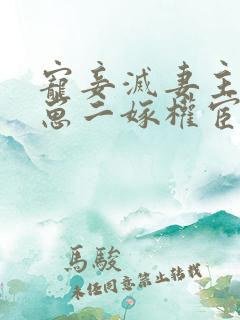 寵妾滅妻主
崽二嫁權宦
馬駿
未经同意禁止转载